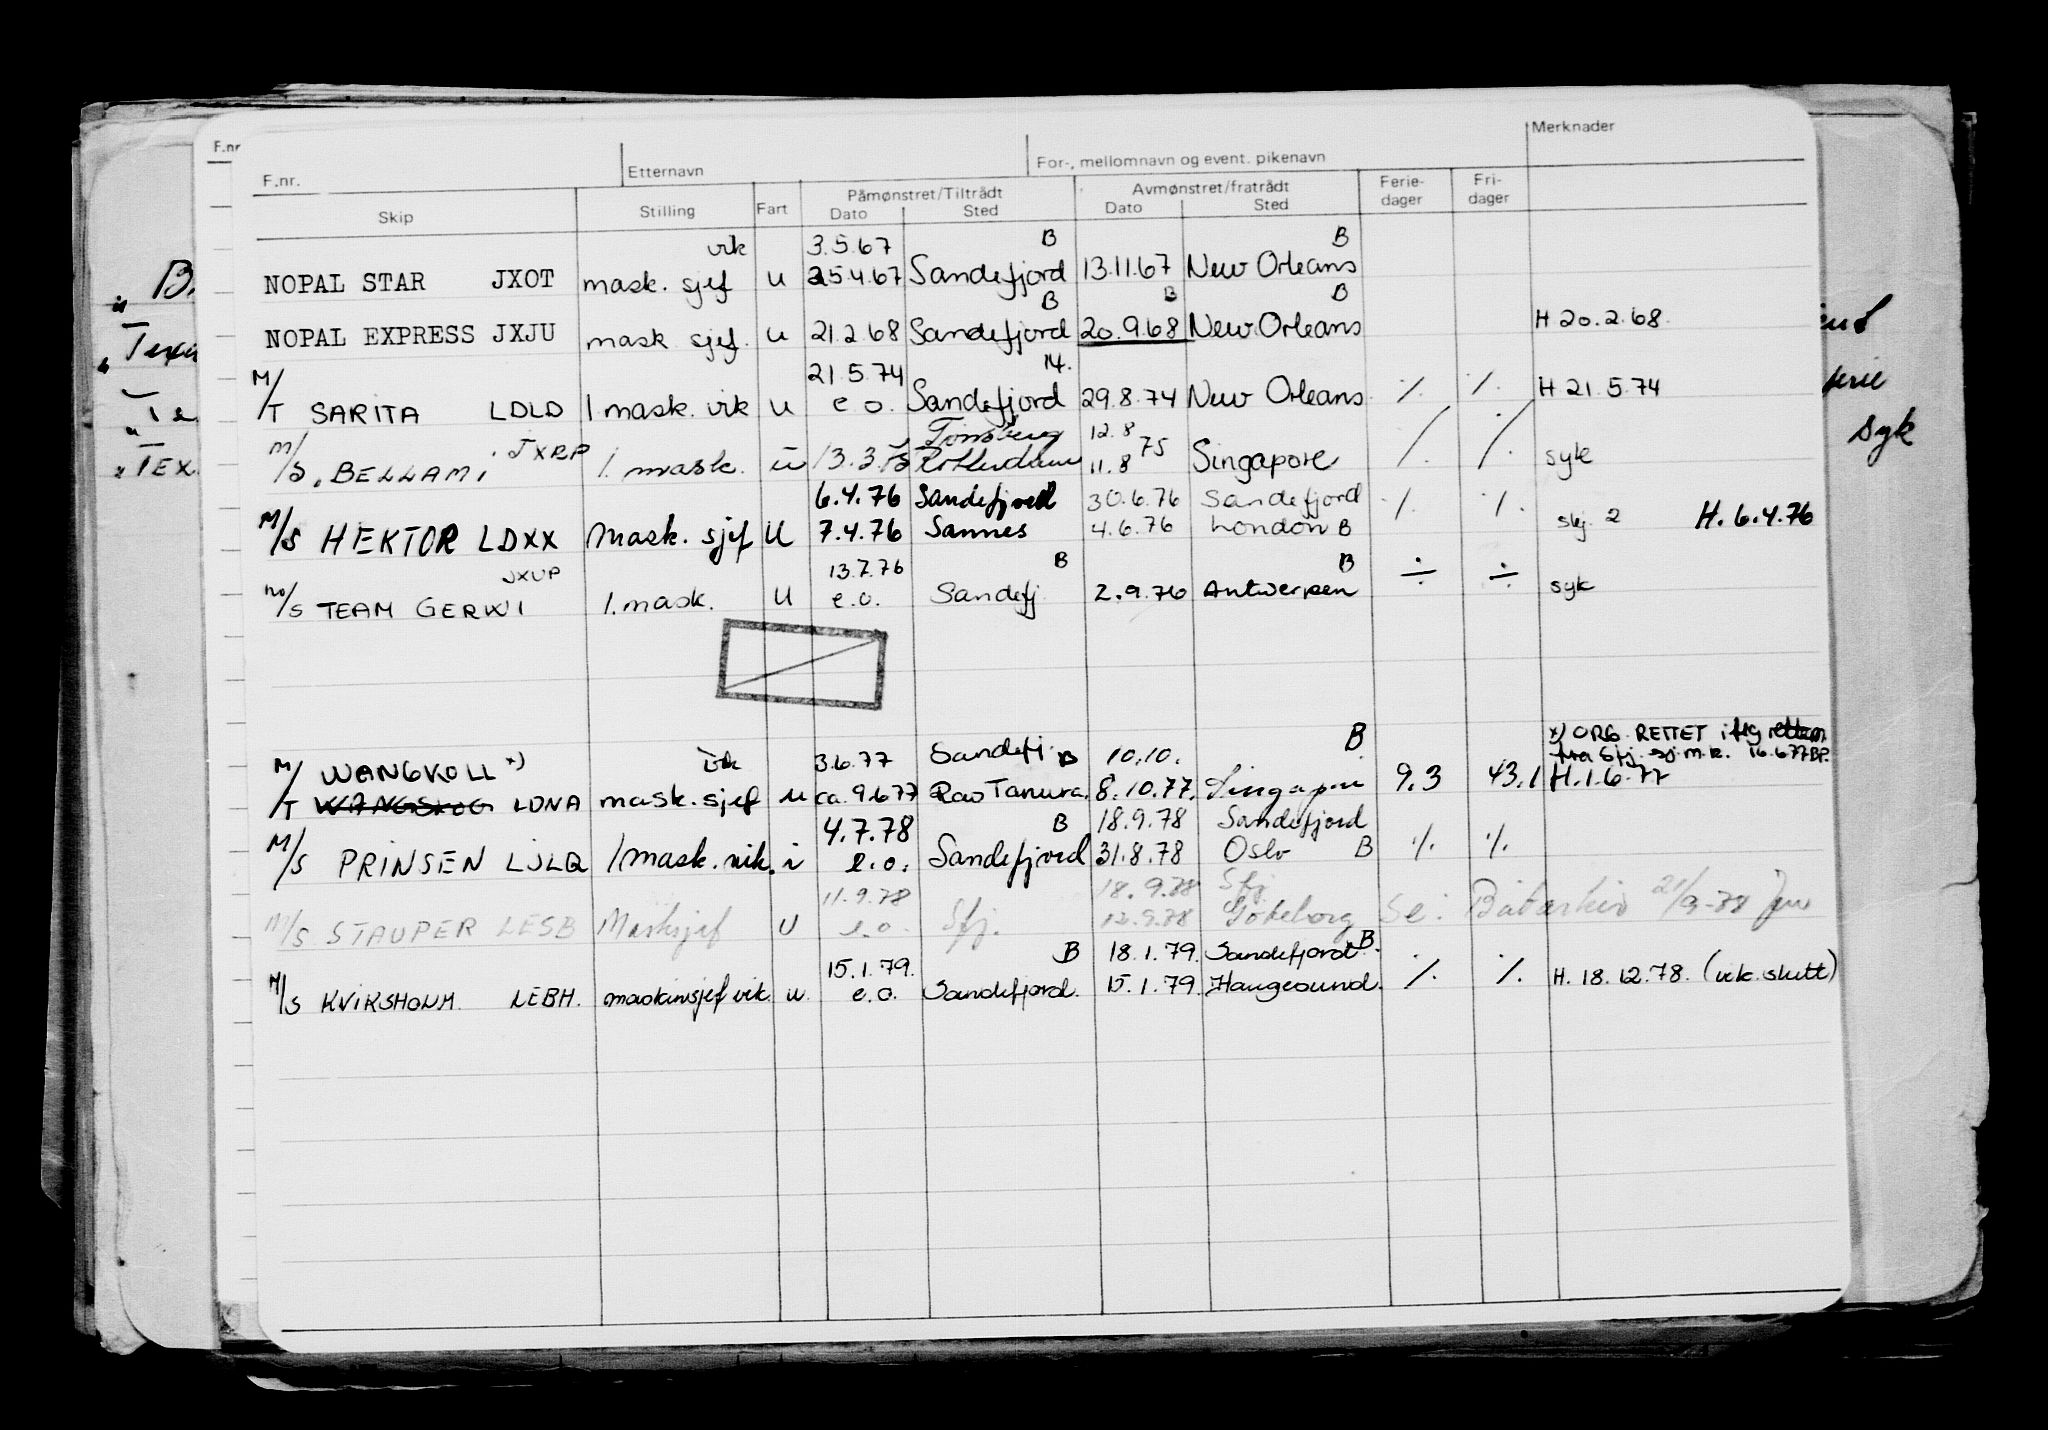 F.nr.
F.nr. Etternavn For-, mellomnavn og event. pikenavn Merknader
Skip Stilling Fart Påmønstret/Tiltrådt Avmønstret/fratrådt Ferie-dager Fri-dager
Dato Sted Dato Sted
vik 3.5.67 B B
NOPAL STAR JXOT mask. sjef u 25.4.67 Sandefjord 13.11.67 New Orleans
B B B
NOPAL EXPRESS JXJU mask sjef. u 21.2.68 Sandefjord 20.9.68 New Orleans H 20.2.68.
21.5.74 14.
M/T SARITA LDLD 1 mask. vik u e.o. Sandefjord 29.8.74 New Orleans ./. ./. H 21.5.74
Tønsberg 12.8
M/S. BELLAMI JXRP 1. mask. u 13.3.75 Rotterdam 11.8 75 Singapore ./. ./. syk
6.4.76 Sandefjord 30.6.76 Sandefjord
M/S HEKTOR LDXX Mask. sjef U 7.4.76 Sannes 4.6.76 London B ./. ./. skj. 2 H. 6.4.76
JXUP 13.7.76 B B
M/S TEAM GERWI 1. mask. U e.o. Sandefj 2.9.76 Antwerpen ÷ ÷ syk
x) ORG. RETTET
fra Sfj. sj.m.k. 16.6.77 BP.
M/ WANGKOLL x) vik 3.6.77 Sandefj. B 10.10. B
T WANGSKOG LDNA mask. sjef u ca. 9.6.77 Ras Tanura. 8.10.77. Singapore 9.3 43.1 H.1.6.77
4.7.78 B 18.9.78 Sandefjord
M/S PRINSEN LJLQ 1 mask. vik. i e.o. Sandefjord 31.8.78 Oslo B ./. ./.
11.9.78 18.9.78 Sfj
M/S STAUPER LESB Masksjef U e.o. Sfj. 12.9.78 Göteborg Se: Båtarkiv 21/9-78
15.1.79. B 18.1.79. Sandefjord B.
M/S KVIKSHOLM. LEBH. maskinsjef vik. u. e.o. Sandefjord. 15.1.79. Haugesund. ./. ./. H. 18.12.78. (vik. slutt)
syk